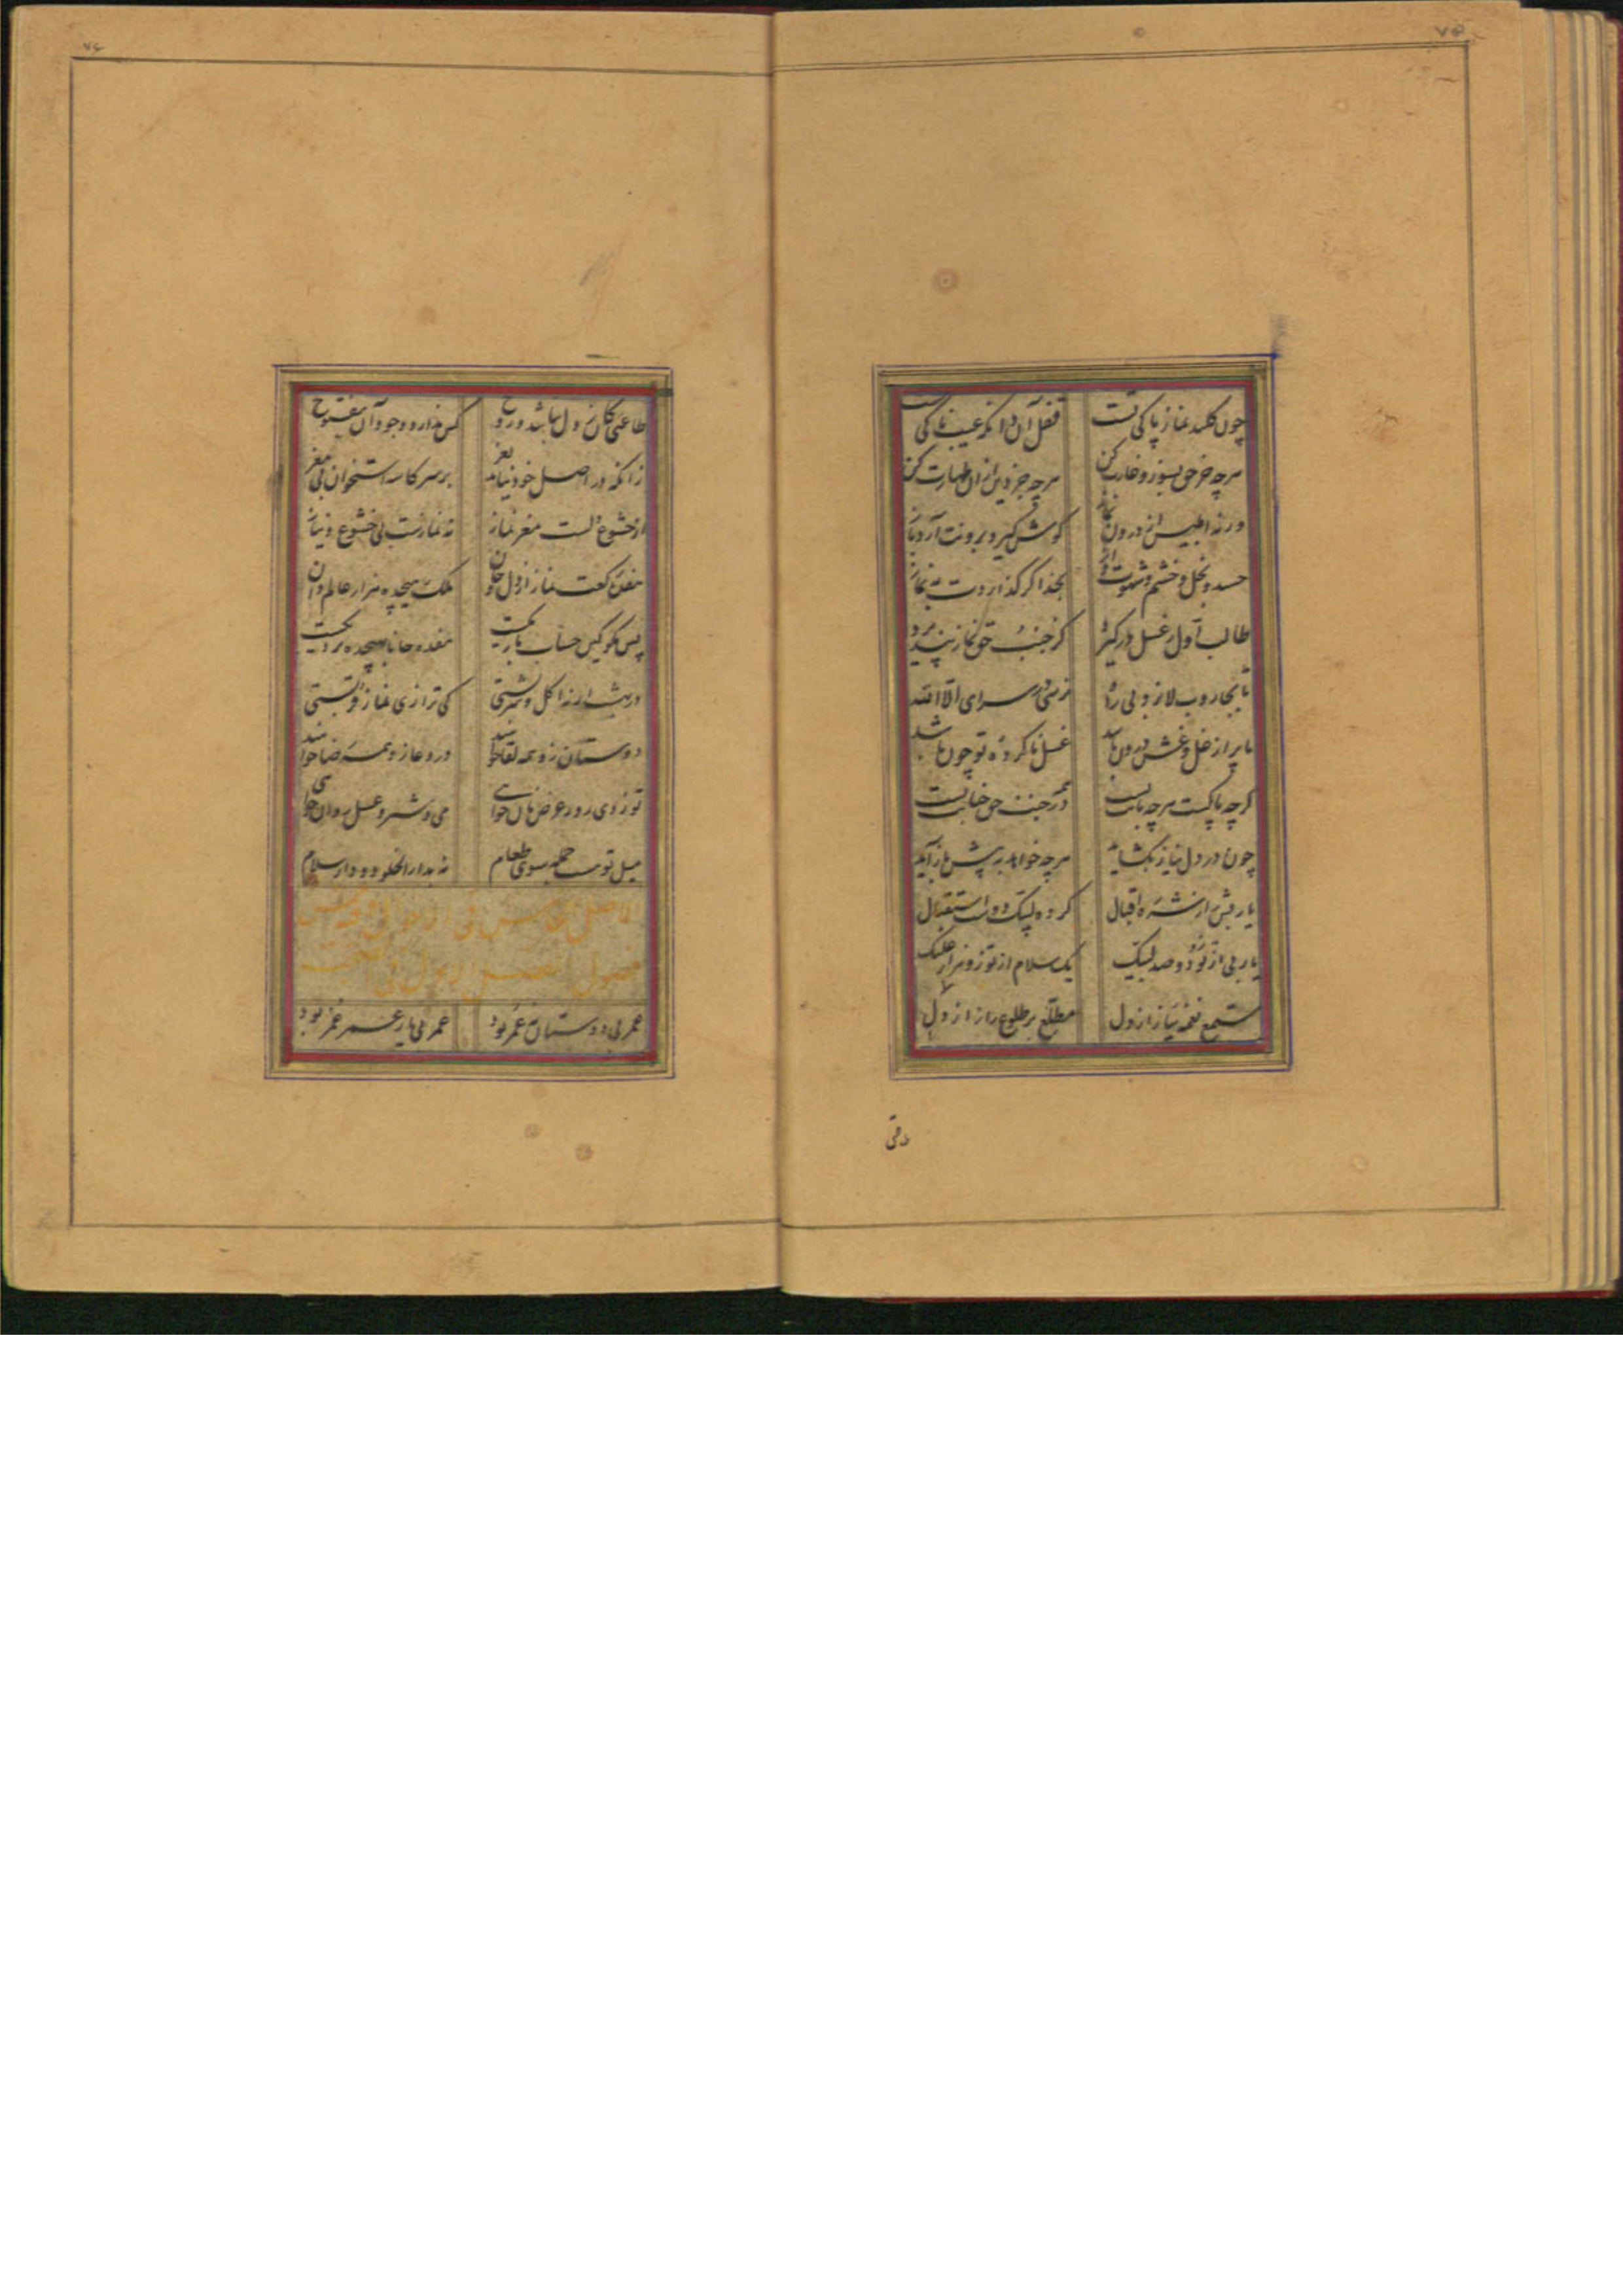 ۷۵
چون کلید نماز پاکی تست قفل آن دان که عیب ناکی تست
هرچه جز حق بسوز و غارت کن هرچه جز دین ازان طهارت کن
ورنه ابلیس از درون نماز گوش گیرد برونت آرد باز
حسد و بخل و خشم و شهوت و آز بخدا گر گذاردت به نماز
طالب اول ز غسل در گیرد کز جنب حق نماز نپذیرد
تا بجاروب لا نروبی راه نرسی در سرای الا الله
تا پر از غل و غش درون باشد غسل ناکرده تو چون باشد
گرچه پاکست هرچه بابت در جنب حق جنابت
چون در دل نیاز بگشاید هرچه خواهد به پیش باز آید
یا ربش از شره اقبال کرده لبیک دوست استقبال
یا ربی از تو زو دوصد لبیک یک سلام از تو زو هزار علیک
مستمع نغمه نیاز از دل مطلع بر طلوع راز از دل
طاعتی
۷۶
طاعتی کان ز دل نباشد و روح کس ندارد وجود آن بفتوح
زانکه در اصل خود نیاید نغز بر سر کاسه استخوان بی مغز
از خشوع دلست مغز نماز نه نمازست بی خشوع و نیاز
هفده رکعت نماز از دل و جان ملک هیجده هزار عالم دان
پس مگو کین حساب باریکست هفده جانا بهیجده نزدیکست
در بهشت ار نه اکل و شربستی کی ترا زی نماز قربستی
دوستان زو همه لقا خواهند در دعا زو همه رضا خواهند
تو زوی روز عرض نان خواهی می و شیر و عسل روان خواهی
میل تو هست جمله سوی طعام نه بدار الخلود و دار سلام
عمر بی دوستان نه عمر بود عمر بی یار عمر غمر بود